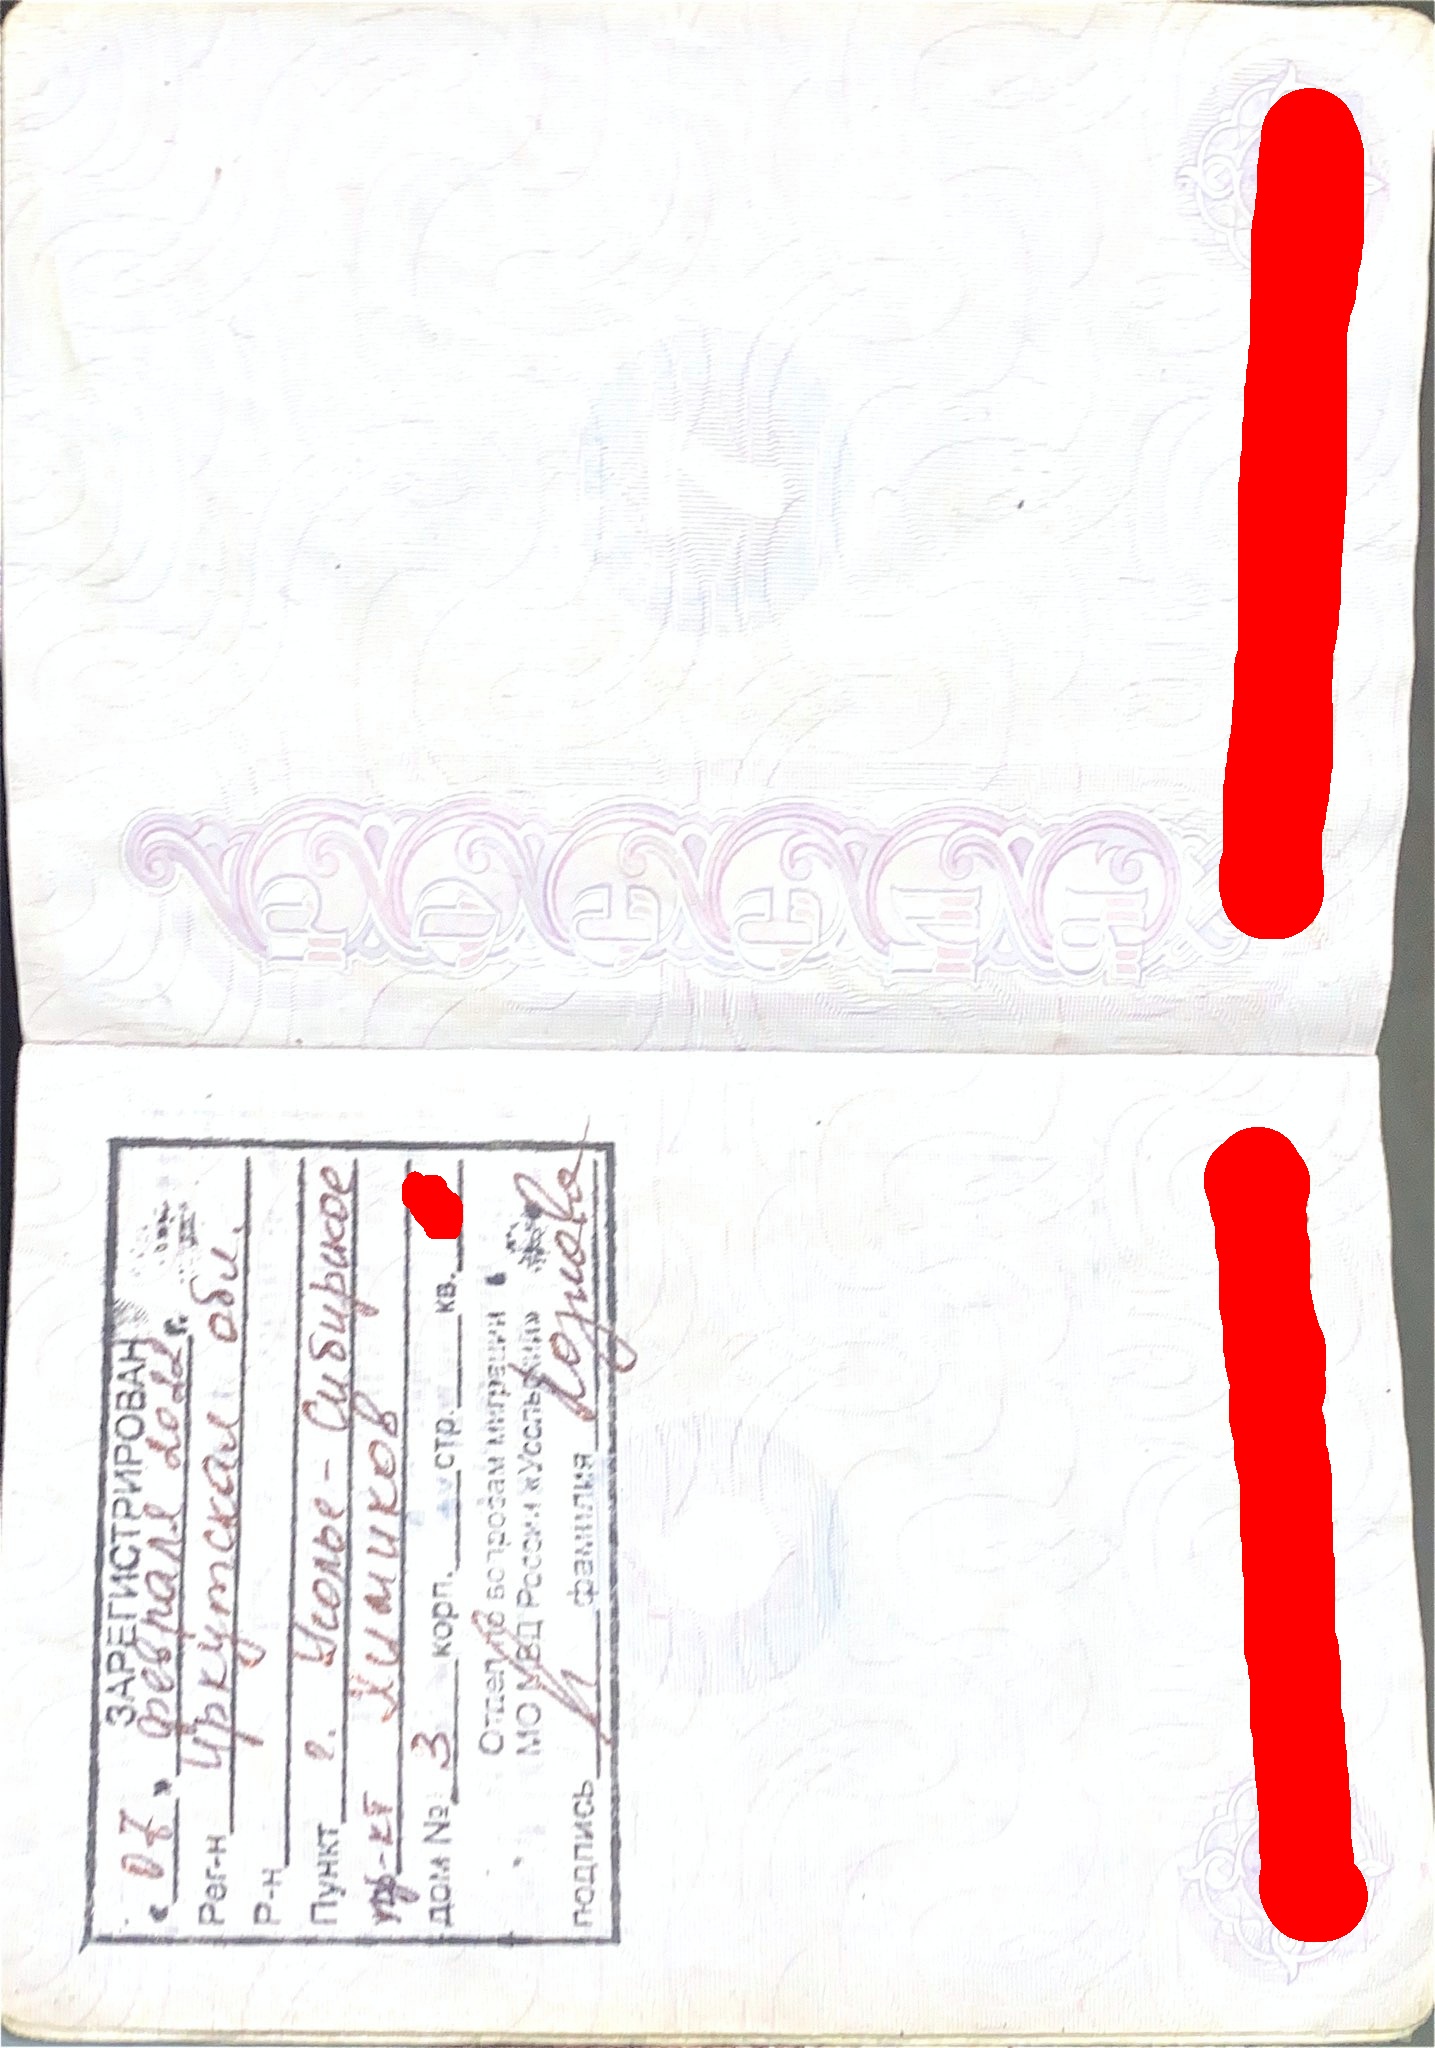 ЗАРЕГИСТРИРОВАН
«07» февраля 2022 г.
Рег-н Иркутская обл.
Р-н
Пункт г. Усолье-Сибирское
пр-кт Химиков
дом № 3 корп. стр. кв.
Отдел по вопросам миграции
МО МВД России «Усольский»
подпись фамилия